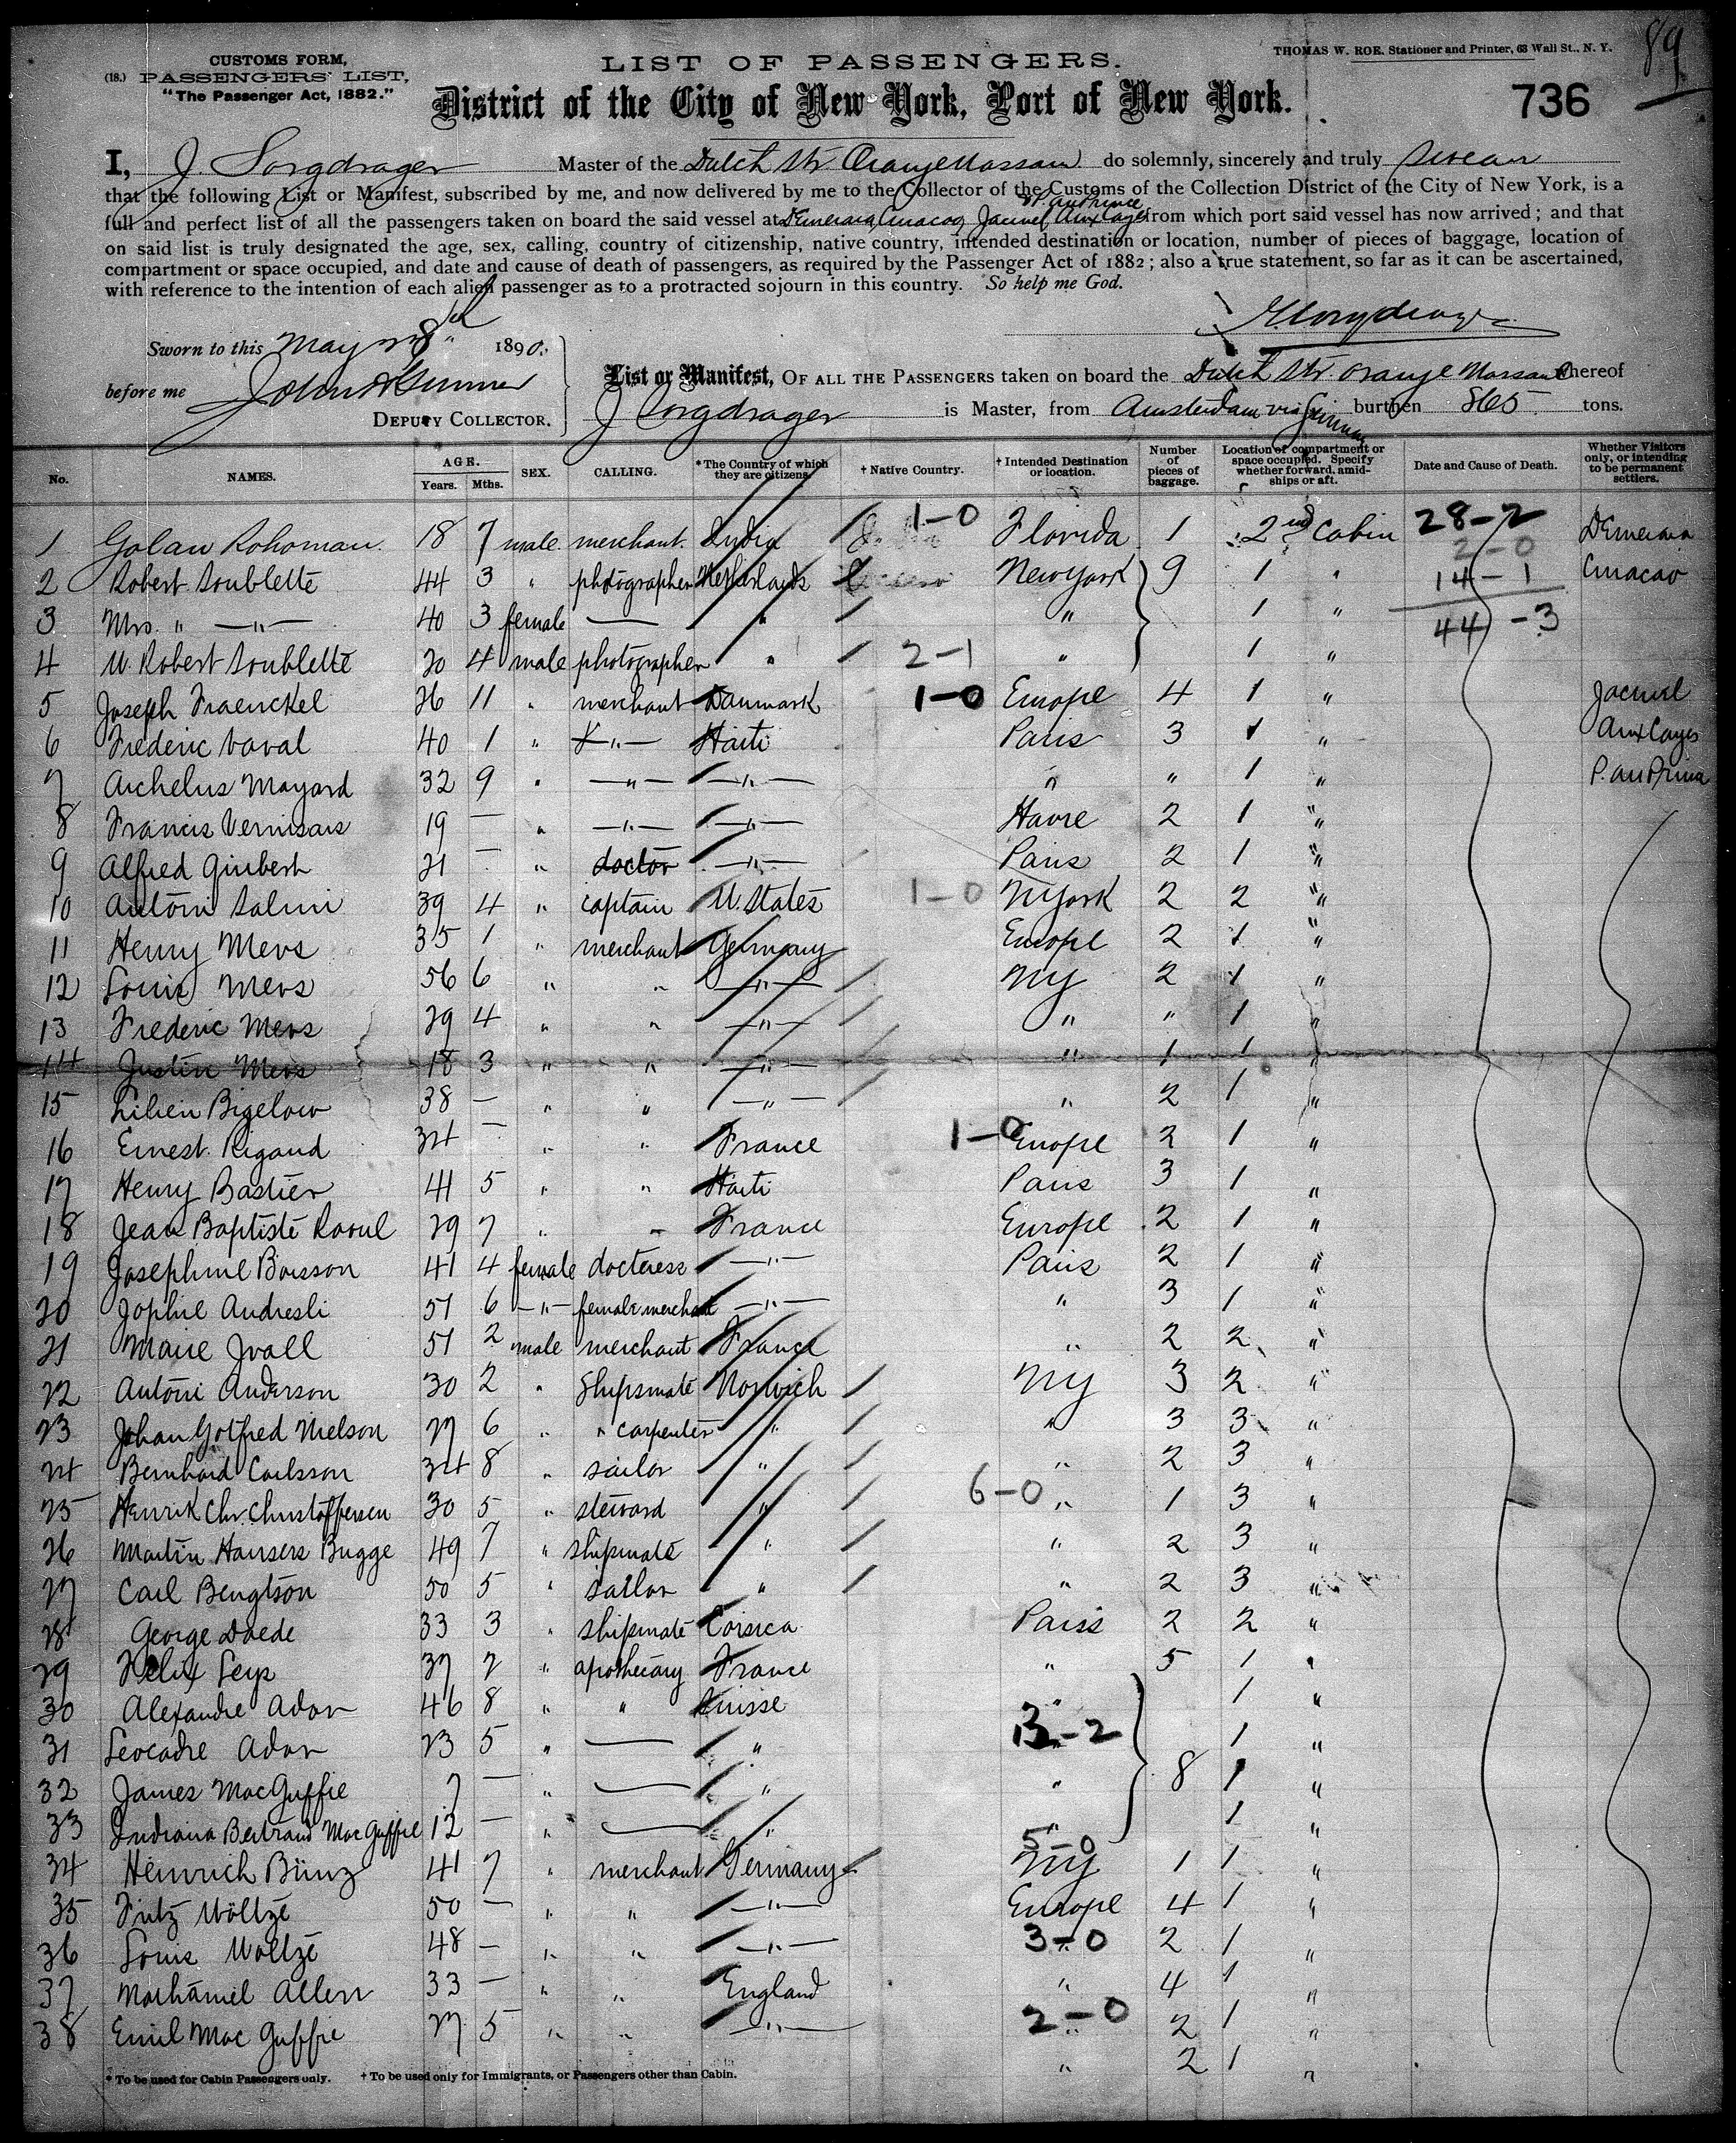 89
CUSTOMS FORM,
(18.) PASSENGERS' LIST,
"The Passenger Act, 1882."
LIST OF PASSENGERS.
THOMAS W. ROE. Stationer and Printer, 63 Wall St., N. Y.
District of the City of New York, Port of New York.
736
I, J. Sorgdrager Master of the Dutch Str. Oranje Nassau do solemnly, sincerely and truly swear
that the following List or Manifest, subscribed by me, and now delivered by me to the Collector of the Customs of the Collection District of the City of New York, is a
P. au Prince
full and perfect list of all the passengers taken on board the said vessel at Demerara, Curacao, Jacmel, Aux Cayes from which port said vessel has now arrived; and that
on said list is truly designated the age, sex, calling, country of citizenship, native country, intended destination or location, number of pieces of baggage, location of
compartment or space occupied, and date and cause of death of passengers, as required by the Passenger Act of 1882; also a true statement, so far as it can be ascertained,
with reference to the intention of each alien passenger as to a protracted sojourn in this country. So help me God.
J. Sorgdrager
Sworn to this May 28th 1890.
before me John
DEPUTY COLLECTOR.
List or Manifest, OF ALL THE PASSENGERS taken on board the Dutch Str. Oranje Nassau whereof
J Sorgdrager is Master, from Amsterdam via Surinam burthen 865 tons.
No. NAMES. AGE. Years. Mths. SEX. CALLING. * The Country of which they are citizens. † Native Country. † Intended Destination or location. Number of pieces of baggage. Location of compartment or space occupied. Specify whether forward, amidships or aft. Date and Cause of Death. Whether Visitors only, or intending to be permanent settlers.
1 Golau Rohoman. 18 7 male merchant. India 1-0 Florida 1 2nd Cabin 28-2 DEmerara
2-0
2 Robert Soublette 44 3 " photographer Netherlands New York 9 1 " 14-1 Curacao
3 Mrs. " —"— 40 3 female — " " 1 " 44-3
4 W. Robert Soublette 20 4 male photographer " 2-1 " 1 "
5 Joseph Fraenckel 26 11 " merchant Danmark 1-0 Europe 4 1 " Jacmel
6 Frederic Naval 40 1 " —"— Haiti Paris 3 1 " Aux Cayes
7 Archelus Mayard 32 9 " —"— —"— " " 1 " P. au Prince
8 Francis Vernisais 19 — " —"— —"— Havre 2 1 "
9 Alfred Guibert 21 — " doctor —"— Paris 2 1 "
10 Antoni Salvri 39 4 " captain U. States 1-0 N York 2 2 "
11 Henry Mevs 35 1 " merchant Germany Europe 2 1 "
12 Louis Mevs 56 6 " " —"— NY 2 1 "
13 Frederic Mevs 29 4 " " —"— " " 1 "
14 Justin Mevs 18 3 " " —"— " 1 1 "
15 Lilien Bigelow 38 — " " —"— " 2 1 "
16 Ernest Rigaud 34 — " " France 1-0 Europe 2 1 "
17 Henry Bastien 41 5 " " Haiti Paris 3 1 "
18 Jean Baptiste Raoul 29 7 " " France Europe 2 1 "
19 Josephine Boisson 41 4 female docteress —"— Paris 2 1 "
20 Jophie Andresli 51 6 —"— female merchant —"— " 3 1 "
21 Marie Jvall 51 2 male merchant France " 2 2 "
22 Antoni Anderson 30 2 " Shipsmate Norwich NY 3 2 "
23 Johan Gotfred Nielson 27 6 " " carpenter " " 3 3 "
24 Bernhard Carlsson 34 8 " sailor " " 2 3 "
25 Henrik Chr. Christoffersen 30 5 " steward " 6-0 " 1 3 "
26 Martin Hansens Bugge 49 7 " shipmate " " 2 3 "
27 Carl Bengtson 50 5 " sailor " " 2 3 "
28 George Daede 33 3 " shipmate Corsica Paris 2 2 "
29 Felix Leys 37 2 " apothecary France " 5 1 "
30 Alexandre Ador 46 8 " " Suisse " 1 "
31 Leocadie Ador 23 5 " — " 13-2 " 1 "
32 James MacGuffie 7 — " — " " 8 1 "
33 Indiana Bertrand Mac Guffie 12 — " — " " 1 "
5-0
34 Heinrich Bünz 41 7 " merchant Germany NY 1 1 "
35 Fritz Wöltze 50 — " " —"— Europe 4 1 "
36 Louis Woltze 48 — " " —"— 3-0 " 2 1 "
37 Nathaniel Allen 33 — " " England " 4 1 "
38 Emil Mac Guffie 27 5 " " —"— 2-0 " 2 1 "
" 2 1 "
* To be used for Cabin Passengers only. † To be used only for Immigrants, or Passengers other than Cabin.